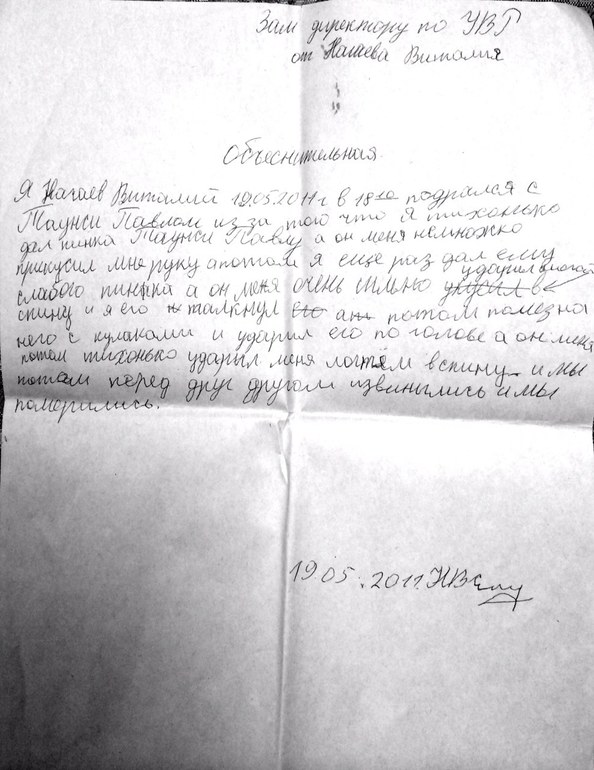 Зам директору по УВР
от Нагаева Виталия
Объеснительная
Я Нагаев Виталий 19.05.2011г в 18 подрался с
Таунси Павлом из за того что я тихонько
дал пинка Таунси Павлу а он меня немножко
прикусил мне руку а потом я еще раз дал ему
слабого пинка а он меня очень сильно укусил ударил ногой в
спину и я его талкнул его а он потом полез на
него с кулаками и ударил его по голове а он меня
потом тихонько ударил меня логтем в спину и мы
потом перед друг другом извинились и мы
помирились.
19.05.2011.